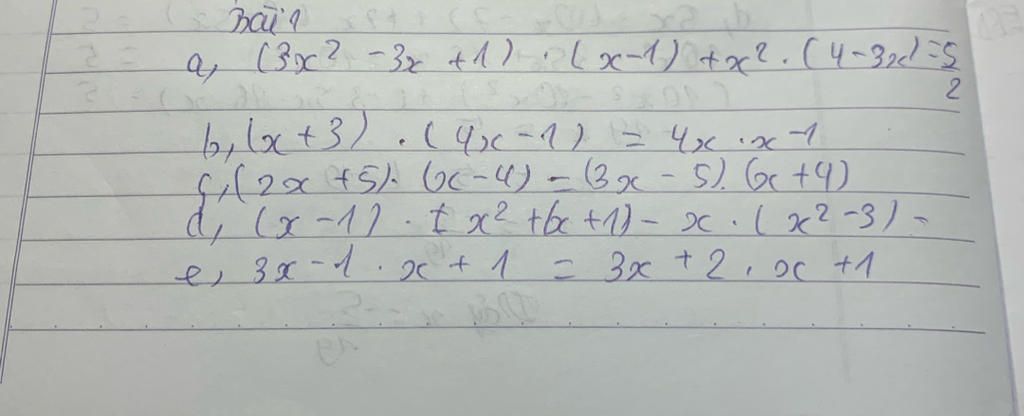 Bài 1
a, (3x² - 3x + 1) · (x-1) + x² · (4-3x) = 5/2
b, (x+3) · (4x-1) = 4x · x-1
c, (2x+5) · (x-4) = (3x-5) · (x+4)
d, (x-1) · (x² + x + 1) - x · (x² - 3) =
e, 3x-1 · x+1 = 3x+2 · x+1